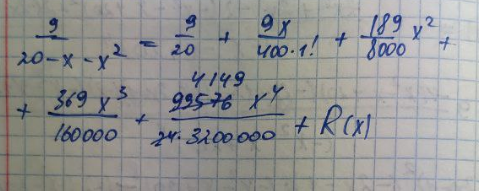 9/(20-x-x²) = 9/20 + 9x/(400·1!) + 189/8000 x² +
+ 369x³/160000 + 4149 x⁴/(24·3200000) + R(x)